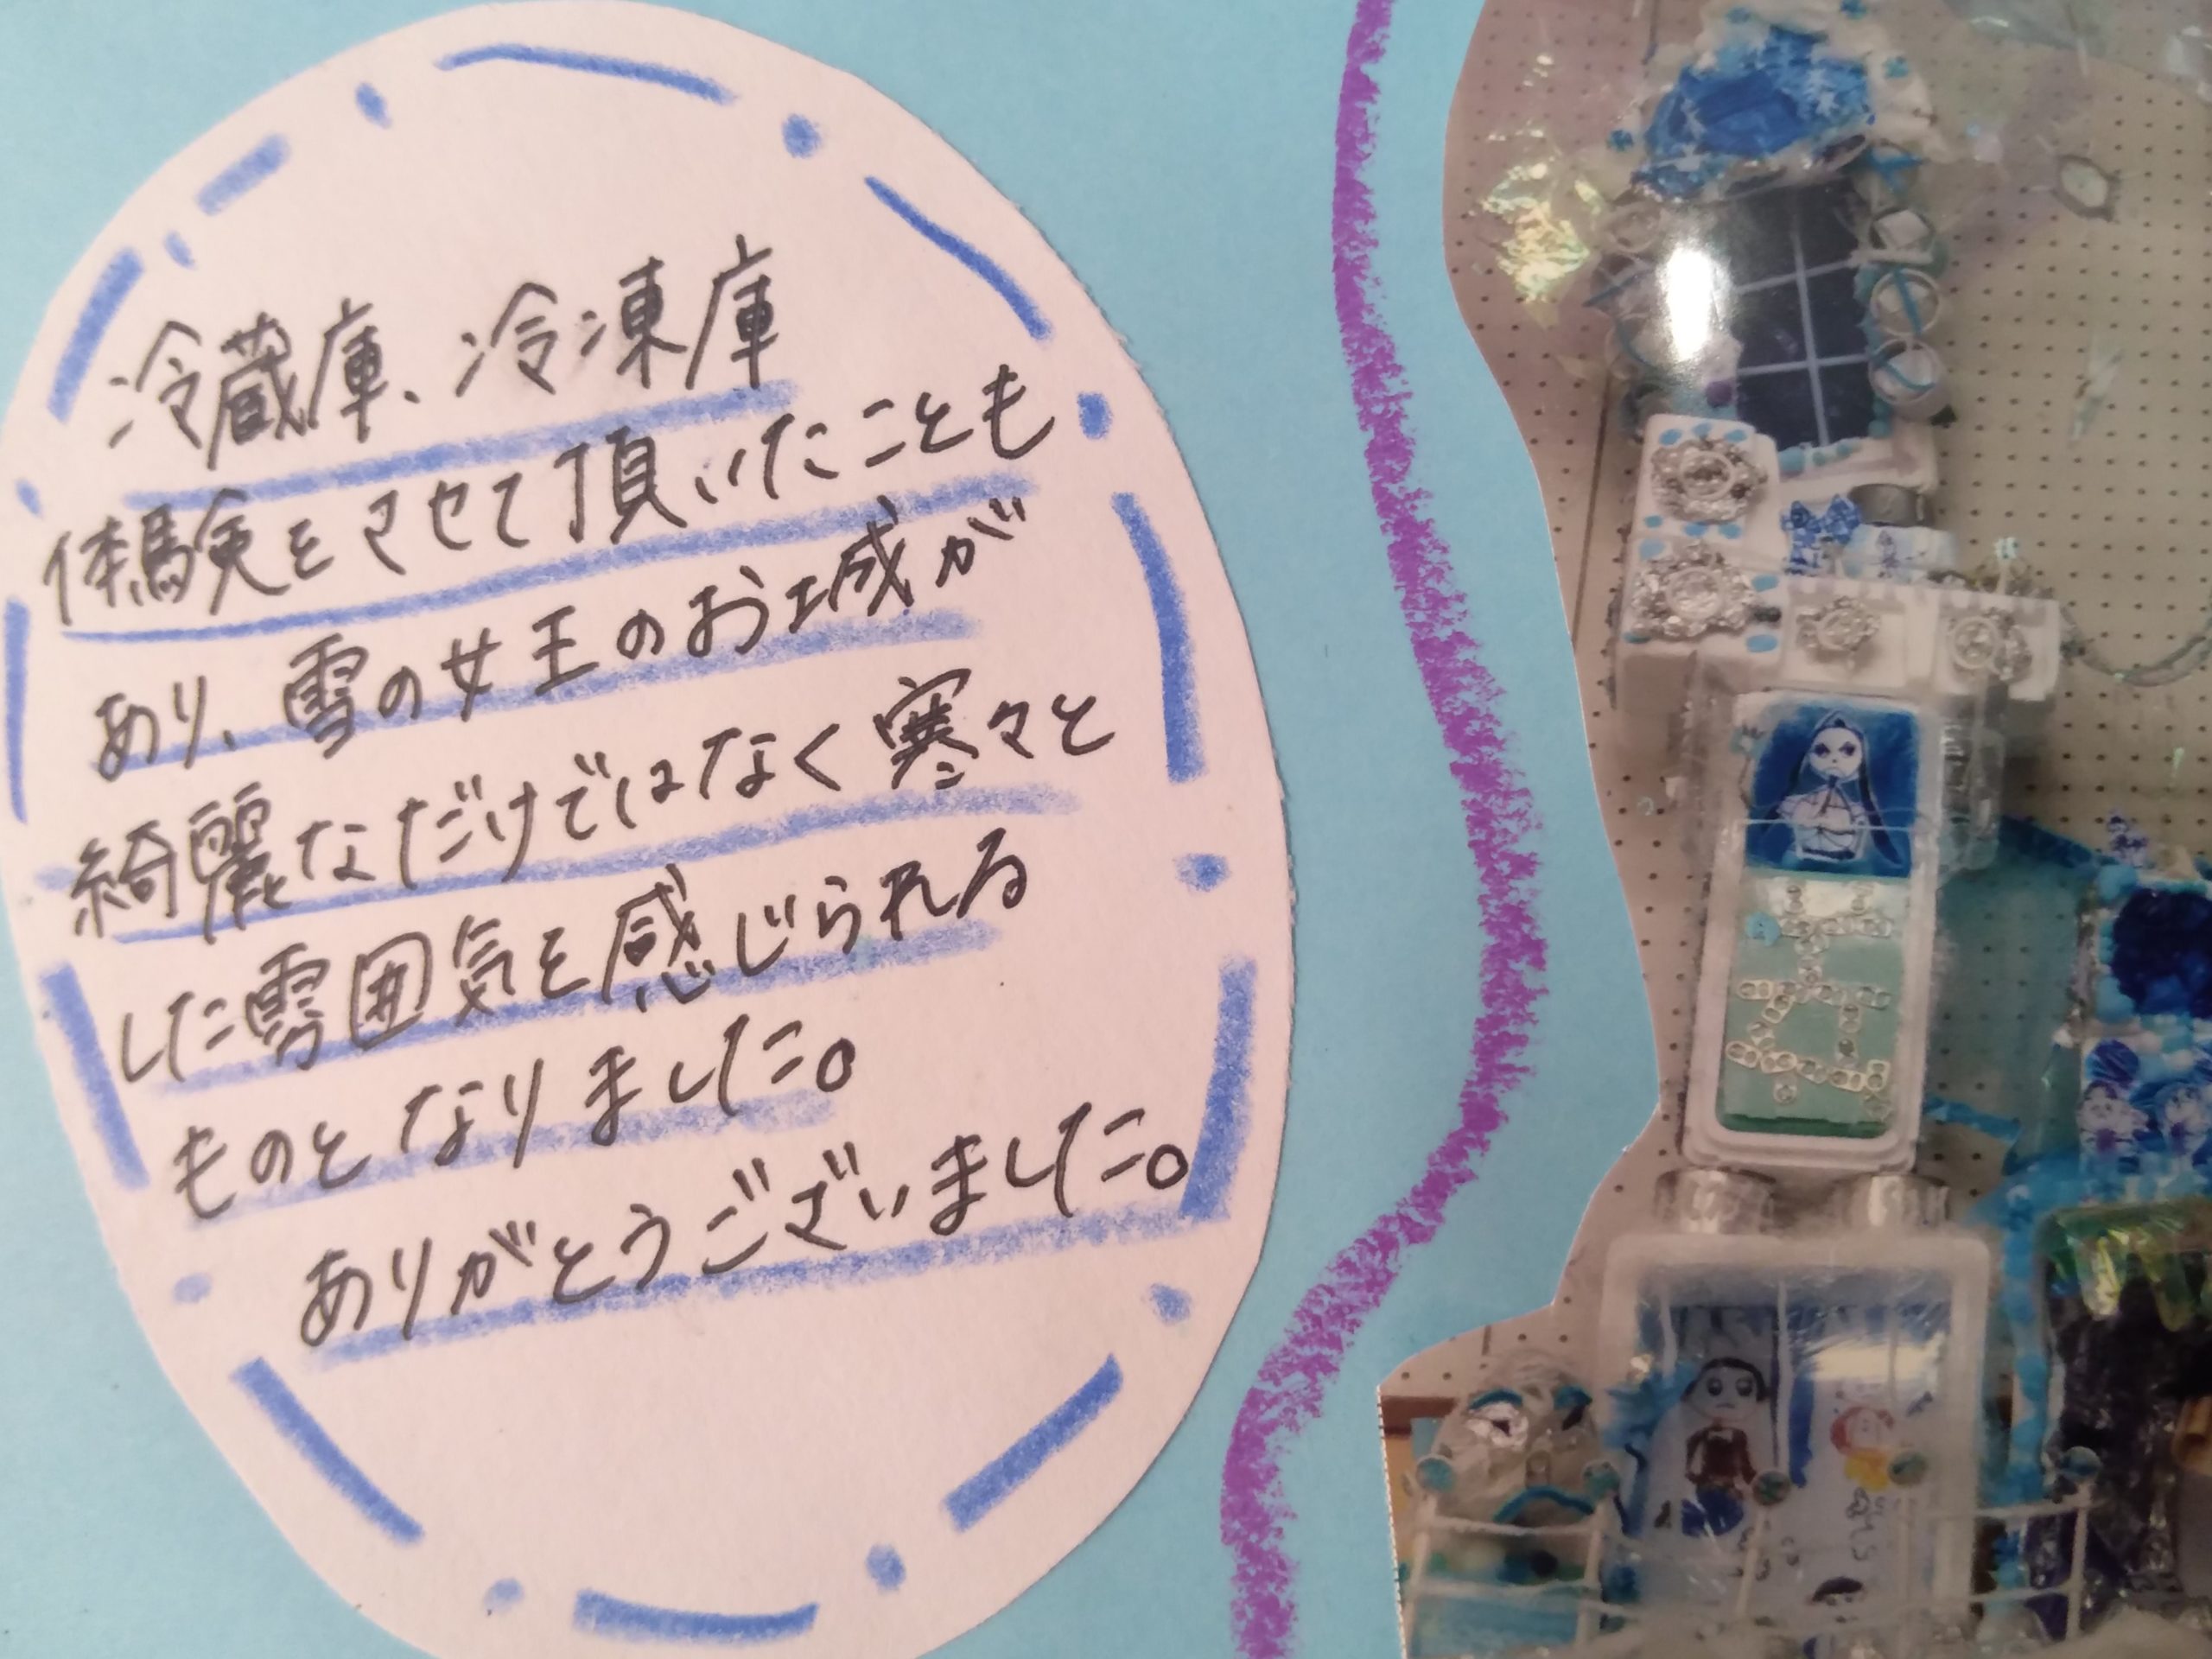 冷蔵庫、冷凍庫
体験をさせて頂いたことも
あり、雪の女王のお城が
綺麗なだけではなく寒々と
した雰囲気を感じられる
ものとなりました。
ありがとうございました。